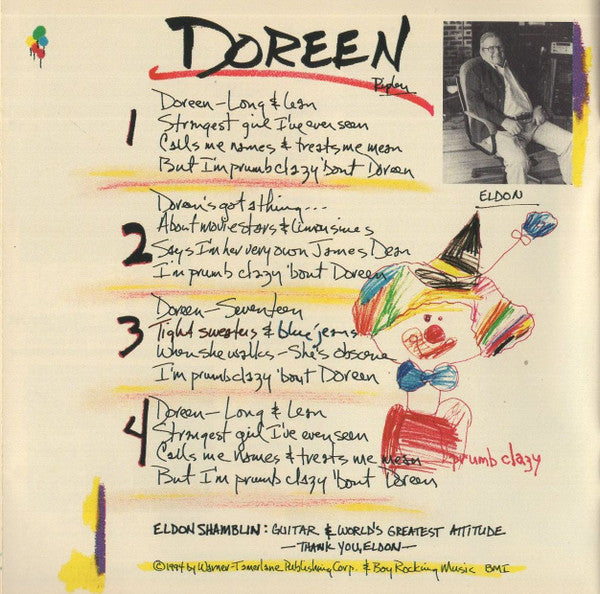 DOREEN
Ripley
1
Doreen-Long & Lean
Strangest girl I've ever seen
Calls me names & treats me mean
But I'm prumb clazy 'bout Doreen
ELDON
2
Doreen's got a thing...
About movie stars & limousines
Says I'm her very own James Dean
I'm prumb clazy 'bout Doreen
3
Doreen-Seventeen
Tight sweaters & blue jeans
When she walks-She's obscene
I'm prumb clazy 'bout Doreen
4
Doreen-Long & Lean
Strangest girl I've ever seen
Calls me names & treats me mean
But I'm prumb clazy 'bout Doreen
prumb clazy
ELDON SHAMBLIN: GUITAR & WORLD'S GREATEST ATTITUDE
-THANK YOU, ELDON-
©1994 by Warner-Tamerlane Publishing Corp. & Boy Rocking Music BMI